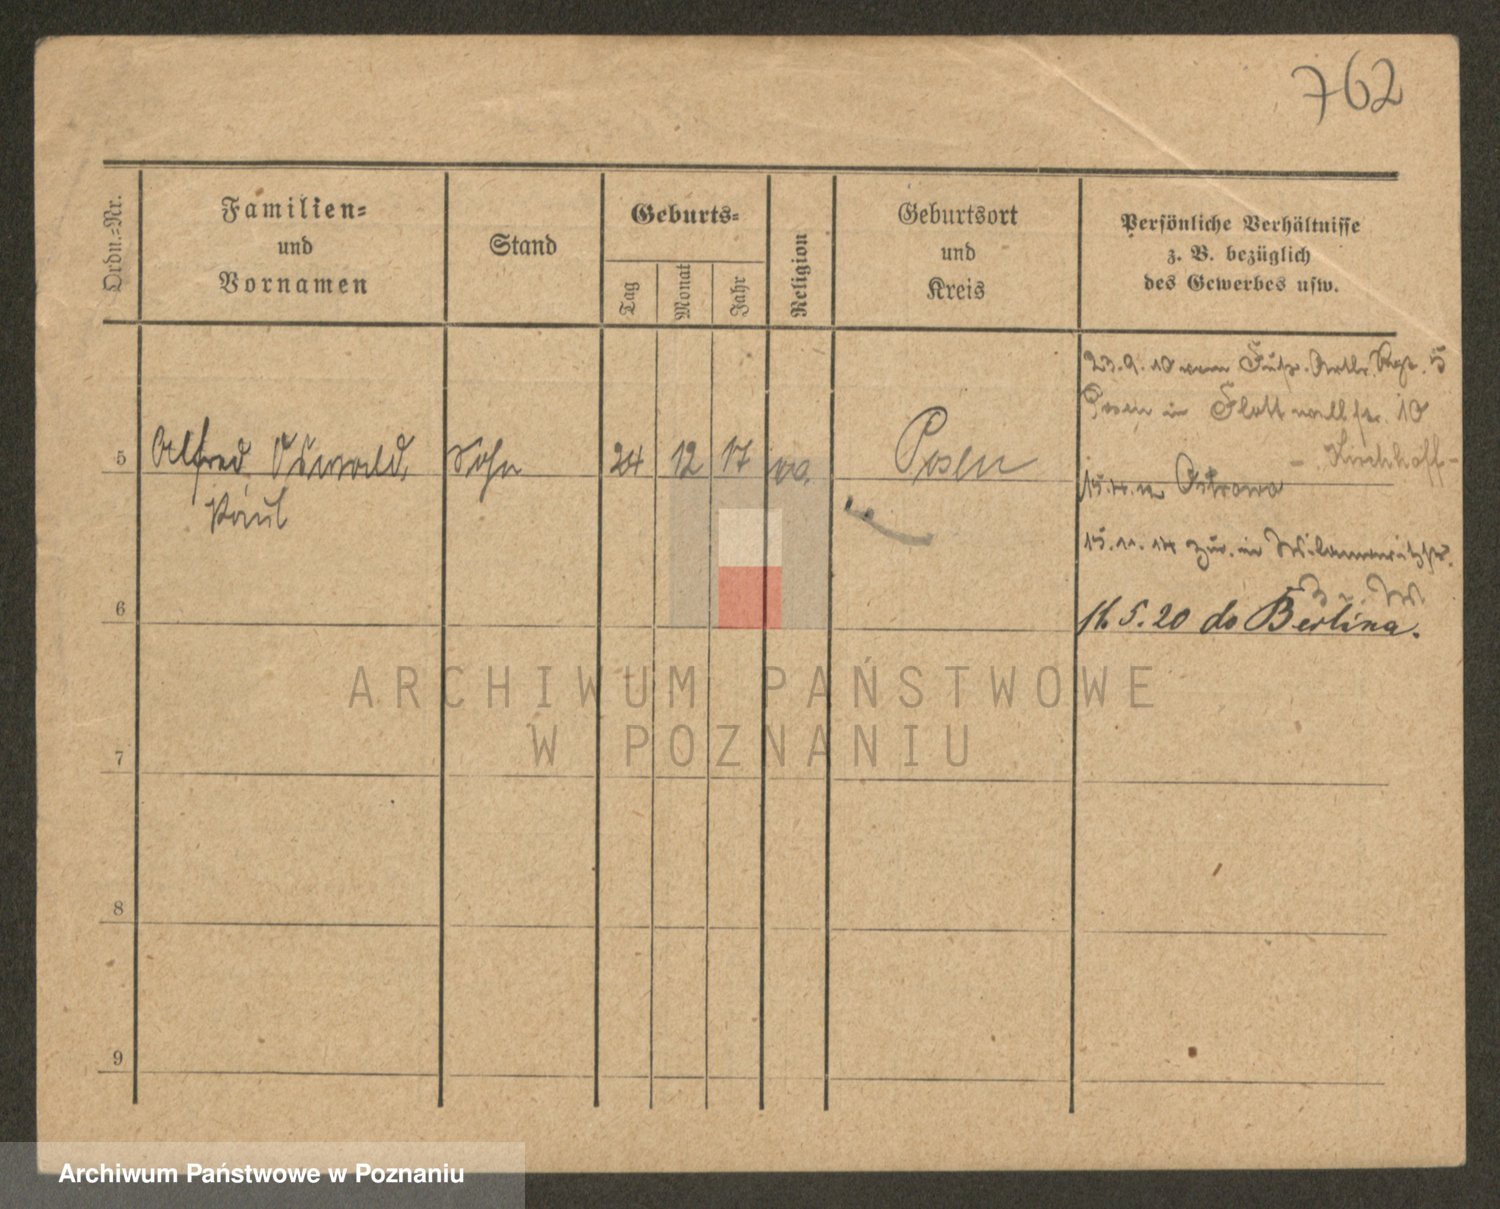 762
Ordn.-Nr.
Familien-
und
Vornamen
Stand
Geburts-
Tag
Monat
Jahr
Religion
Geburtsort
und
Kreis
Persönliche Verhältnisse
z. B. bezüglich
des Gewerbes usw.
23.9.10 vom Fußr. Artlr. Regt. 5
Posen in Flottwellstr. 10
Kirchhoff
5 Alfred Oswald Sohn 24 12 17 Posen
Paul
Ostrowo
15.11.14 zur. in
6
5.20 do Berlina.
7
8
9
ARCHIWUM PAŃSTWOWE
W POZNANIU
Archiwum Państwowe w Poznaniu